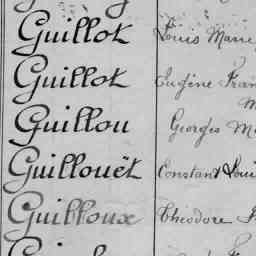 Guillot Louis Marie
Guillot Eugène
Guillou Georges
Guillouët Constant Loui
Guilloux Théodore